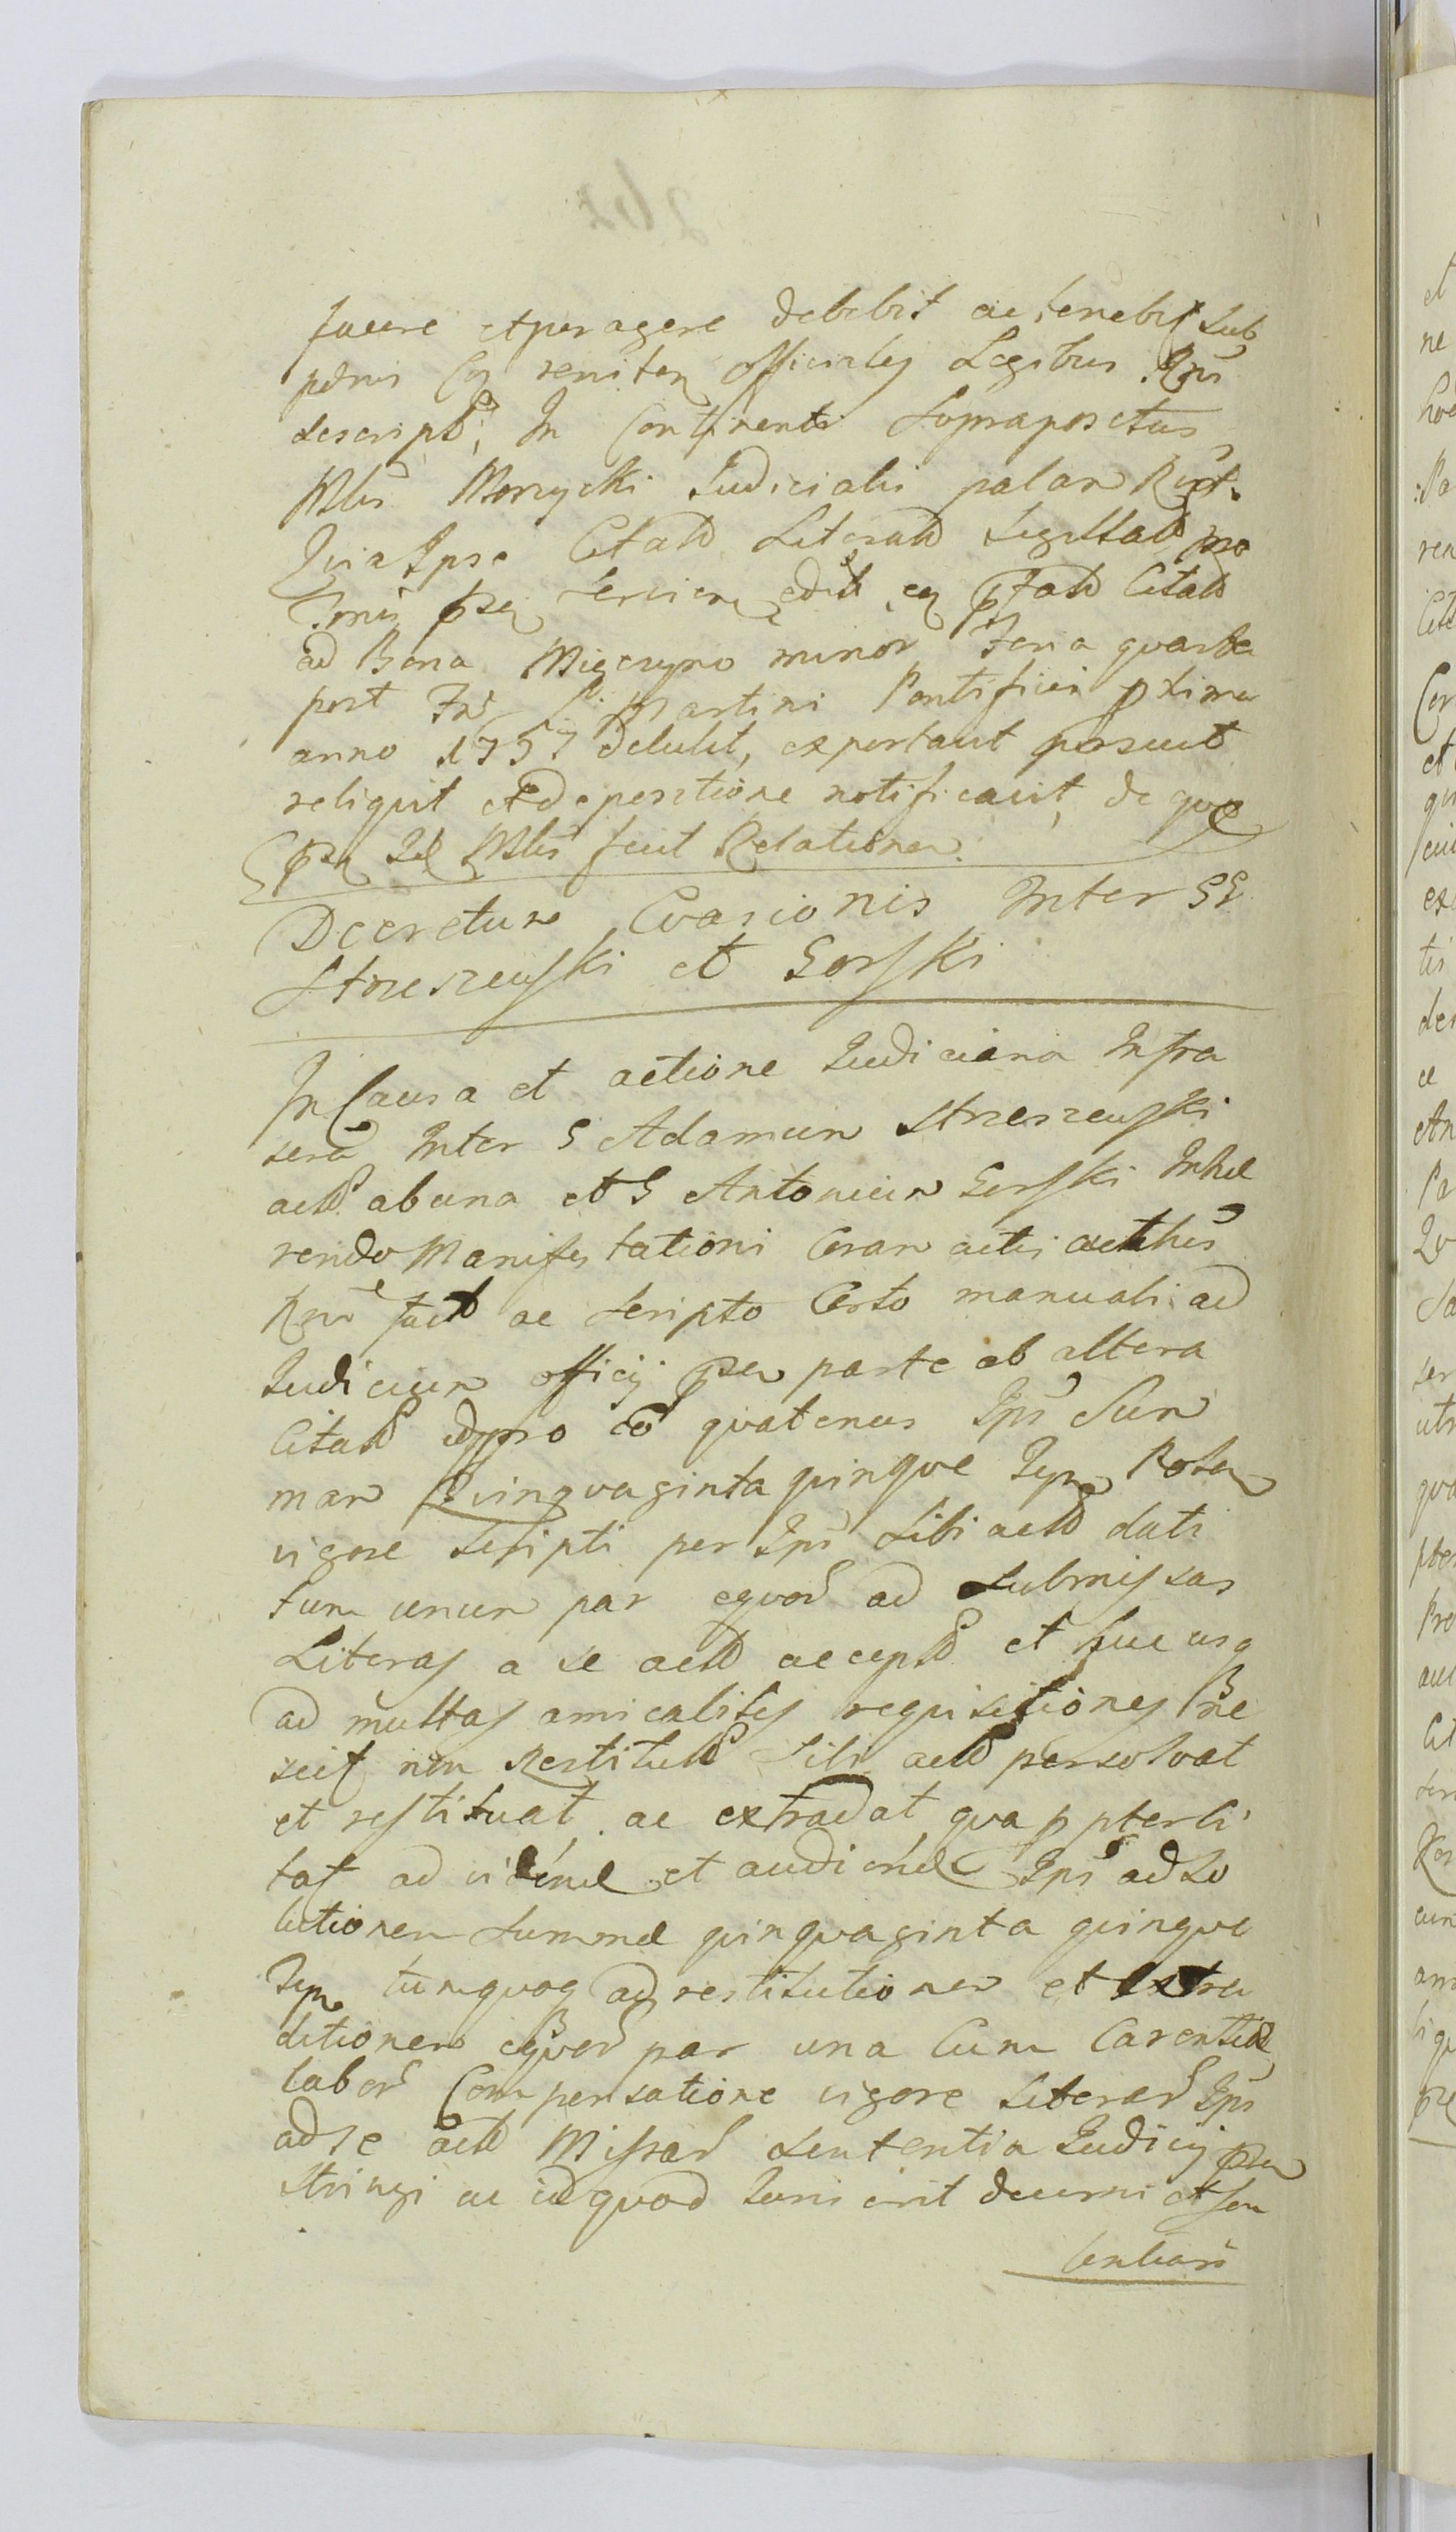 facere et peragere debebit ac tenebit sub
penis Con reniten officiales Legibus Rgni
descript, In Continenti Suprapositus
Mlis Morzycki Judicialis palam Rcgt.
Quia Ipse Citatt Literatt Sigillatt pro
Termi pnti tercien edit ex pttatt Citatt
ad Bona Mięczyno minor Feria quarta
post Fm S Martini Pontificis pxima
anno 1757 detulit, exportavit posuit
reliquit et de positione notificavit, de quo
Idē Mlis fecit Relationem.
Decretum Evasionis Inter GG
Strzeszewski et Gorski
In Causa et actione Judiciaria Infra
scra Inter G Adamum Strzeszewski
actt ab una et G Antonium Gorski Inhæ
rendo Manifestationi Coram actis actthis
fact ac scripto Certo manuali ad
Judicium officij psen parte ab altera
Citatt idq pro eo quatenus Ips Sum
mam Quinquaginta quinque Tynp
vigore scripti per Ips Sibi actt dati
tum unum par eqvor ad submissas
Literas a se actt accept et huc usq
ad multas amicalites requisitiones
scit non Restitutt Sibi actt persolvat
et restituat ac extradat qua ppter Ci
tat ad vidend et audiend Ips ad so
lutionem Summæ quinquaginta quinque
Tynp tumquoq ad restitutionem et extra
ditionem eqvor par una Cum Carentiæ
labor Compensatione vigore Literar Ips
ad se actt Missar Sententia Judicij psen
stringi ac id quod Juris erit decerni et sen
tentiari